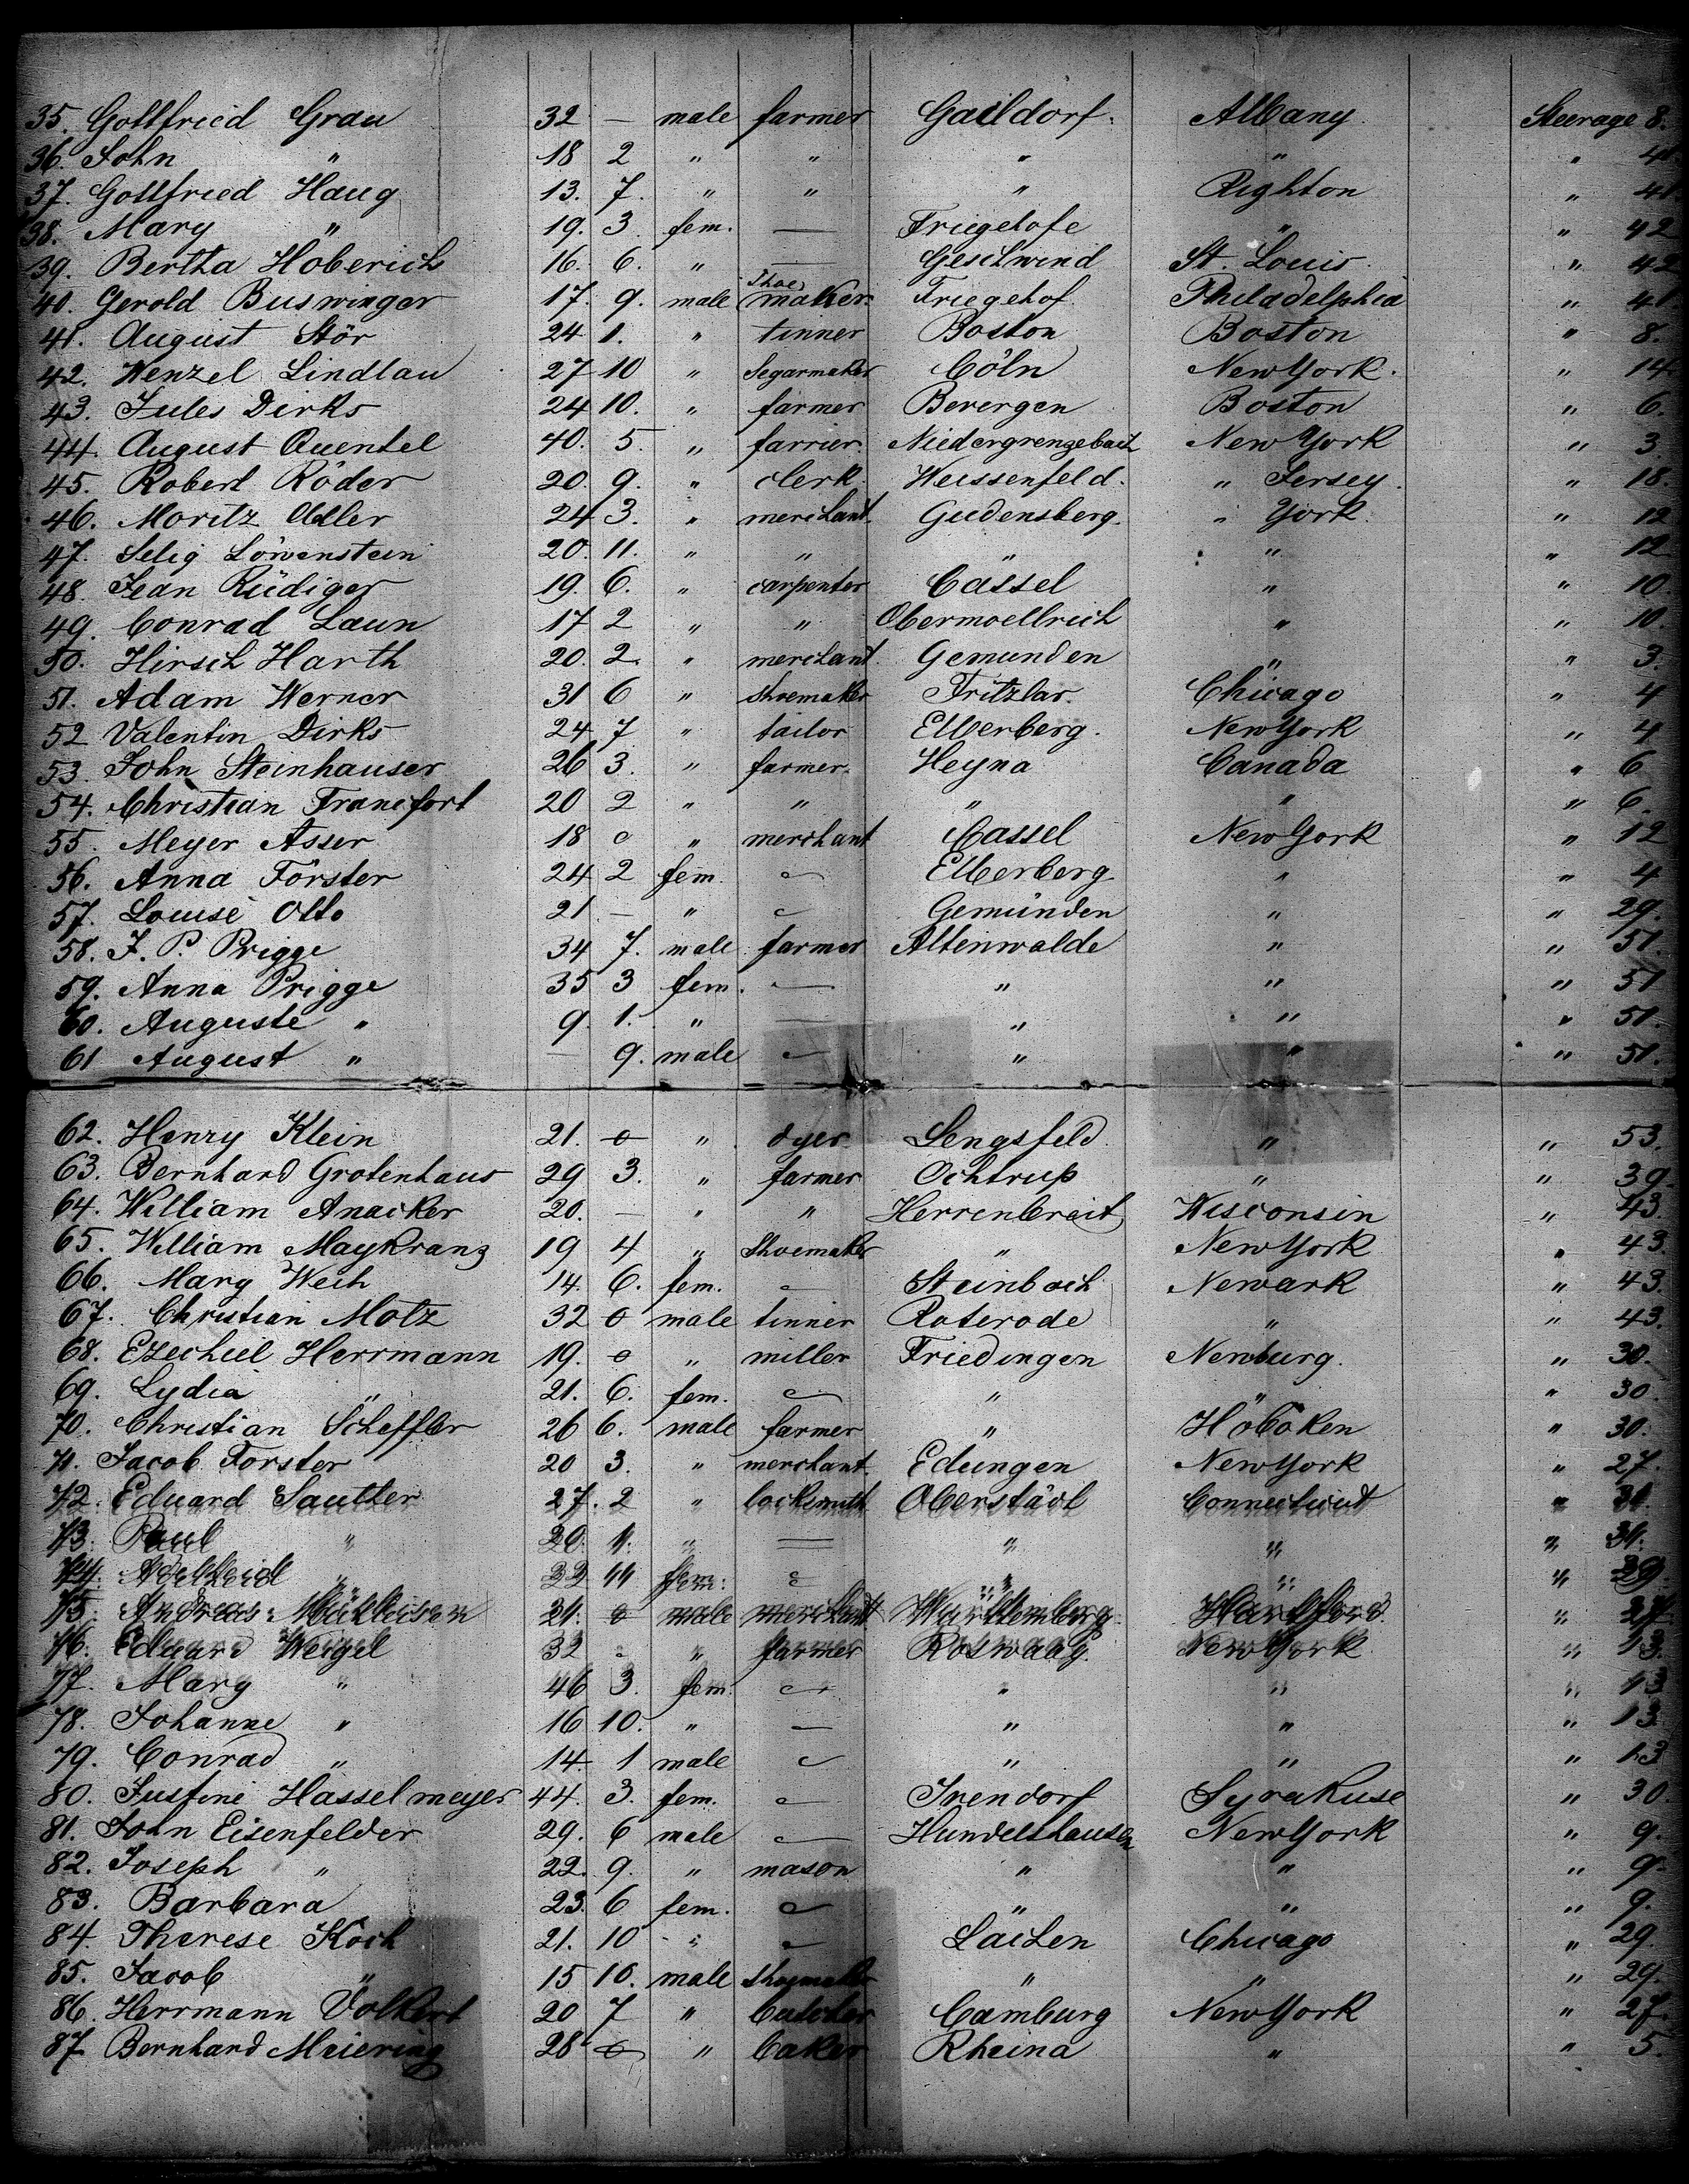 35. Gottfried Grau 32 — male farmer Gaildorf. Albany. Steerage 8.
36. John " 18 2 " " " " " 41.
37. Gottfried Haug 13. 7. " " " Righton " 41.
38. Mary " 19. 3 fem. — Friegehofe " " 42
39. Bertha Hoberich 16. 6. " — Geschwind St. Louis. " 42
40. Gerold Buswinger 17. 9. male Shoemaker Friegehof Philadelphia " 41
41. August Stör 24 1. " tinner Boston Boston " 8.
42. Wenzel Lindlau 27 10 " Segarmaker Cöln New York. " 14
43. Jules Dirks 24 10. " farmer Berergen Boston " 6.
44. August Quentel 40. 5. " farrier. Niedergrenzebach New York " 3.
45. Robert Röder 20. 9. " clerk Weissenfeld. " Jersey. " 18.
46. Moritz Adler 24 3. " merchant. Gudensberg. " York. " 12
47. Selig Löwenstein 20. 11. " " " " " 12
48. Jean Rüdiger 19. 6. " carpenter Cassel " " 10.
49. Conrad Laun 17 2 " " Obermoellrich " " 10.
50. Hirsch Harth 20. 2. " merchant. Gemunden " " 3.
51. Adam Werner 31 6 " Shoemaker Fritzlar. Chicago " 4
52 Valentin Dirks 24 7 " tailor Elberberg. New York " 4
53. John Steinhauser 26 3. " farmer. Heyna Canada " 6
54. Christian Francfort 20 2 " " " " " 6.
55. Meyer Asser 18 0 " merchant Cassel New York " 12
56. Anna Förster 24 2 fem. — Elberberg " " 4
57. Louise Otto 21 — " — Gemünden " " 29.
58. J. P. Prigge 34 7. male farmer Altenwalde " " 51.
59. Anna Prigge 35 3 fem. — " " " 51
60. Auguste " 9. 1. " — " " " 51.
61 August " — 9. male — " " " 51.
62. Henry Klein 21. 0 " dyer Lengsfeld. " " 53.
63. Bernhard Grotenhaus 29 3. " farmer Ochtrup " " 39.
64. William Anacker 20. — " " Herrenbreit Wisconsin " 43.
65. William Maykranz 19 4 " Shoemaker " New York " 43.
66. Mary Wech 14. 6. fem. — Steinbach Newark " 43.
67. Christian Motz 32 0 male tinner Roterode " " 43.
68. Ezechiel Herrmann 19. 0 " miller Friedingen Newburg. " 30.
69. Lydia " 21. 6. fem. — " " " 30.
70. Christian Scheffler 26 6. male farmer " Hoboken " 30.
71. Jacob Forster 20 3. " merchant. Edungen New York " 27.
72. Eduard Sautter 27. 2 " locksmith Oberstädt Connecticut " 31.
73. Paul " 20. 11. " — " " " 31.
74. Adelheid " 22 11 fem. — " " " 29.
75. Andreas 21. 0 male merchant Württemberg. Hartford. " 27
76. Eduard Weigel 32 — " farmer Roswaag. New York " 13.
77. Mary " 46 3. fem. — " " " 13
78. Johanne " 16 10. " — " " " 13.
79. Conrad " 14. 1 male — " " " 13
80. Justine Hasselmeyer 44. 3. fem. — Irendorf Syrakuse " 30.
81. John Eisenfelder 29. 6 male — Hundelshausen New York " 9.
82. Joseph " 22. 9. " mason " " " 9.
83. Barbara 23. 6 fem. — " " " 9.
84. Therese Koch 21. 10 " — Laichen Chicago " 29.
85. Jacob " 15 10. male shoemaker " " " 29.
86. Herrmann Volkert 20 7 " butcher Camburg New York " 27.
87 Bernhard Meiering 28 0 " baker Rheina " " 5.